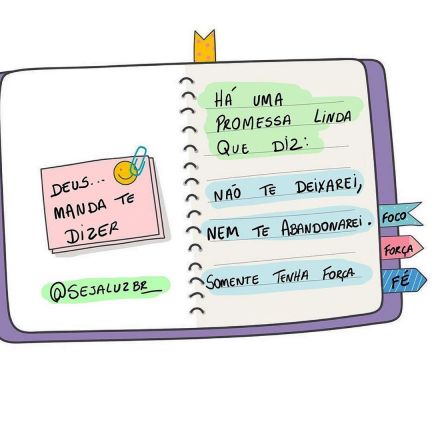 DEUS...
MANDA TE
DIZER
@SEJALUZBR_
HÁ UMA
PROMESSA LINDA
QUE DIZ:
NÃO TE DEIXAREI,
NEM TE ABANDONAREI.
SOMENTE TENHA FORÇA
FOCO
FORÇA
FÉ